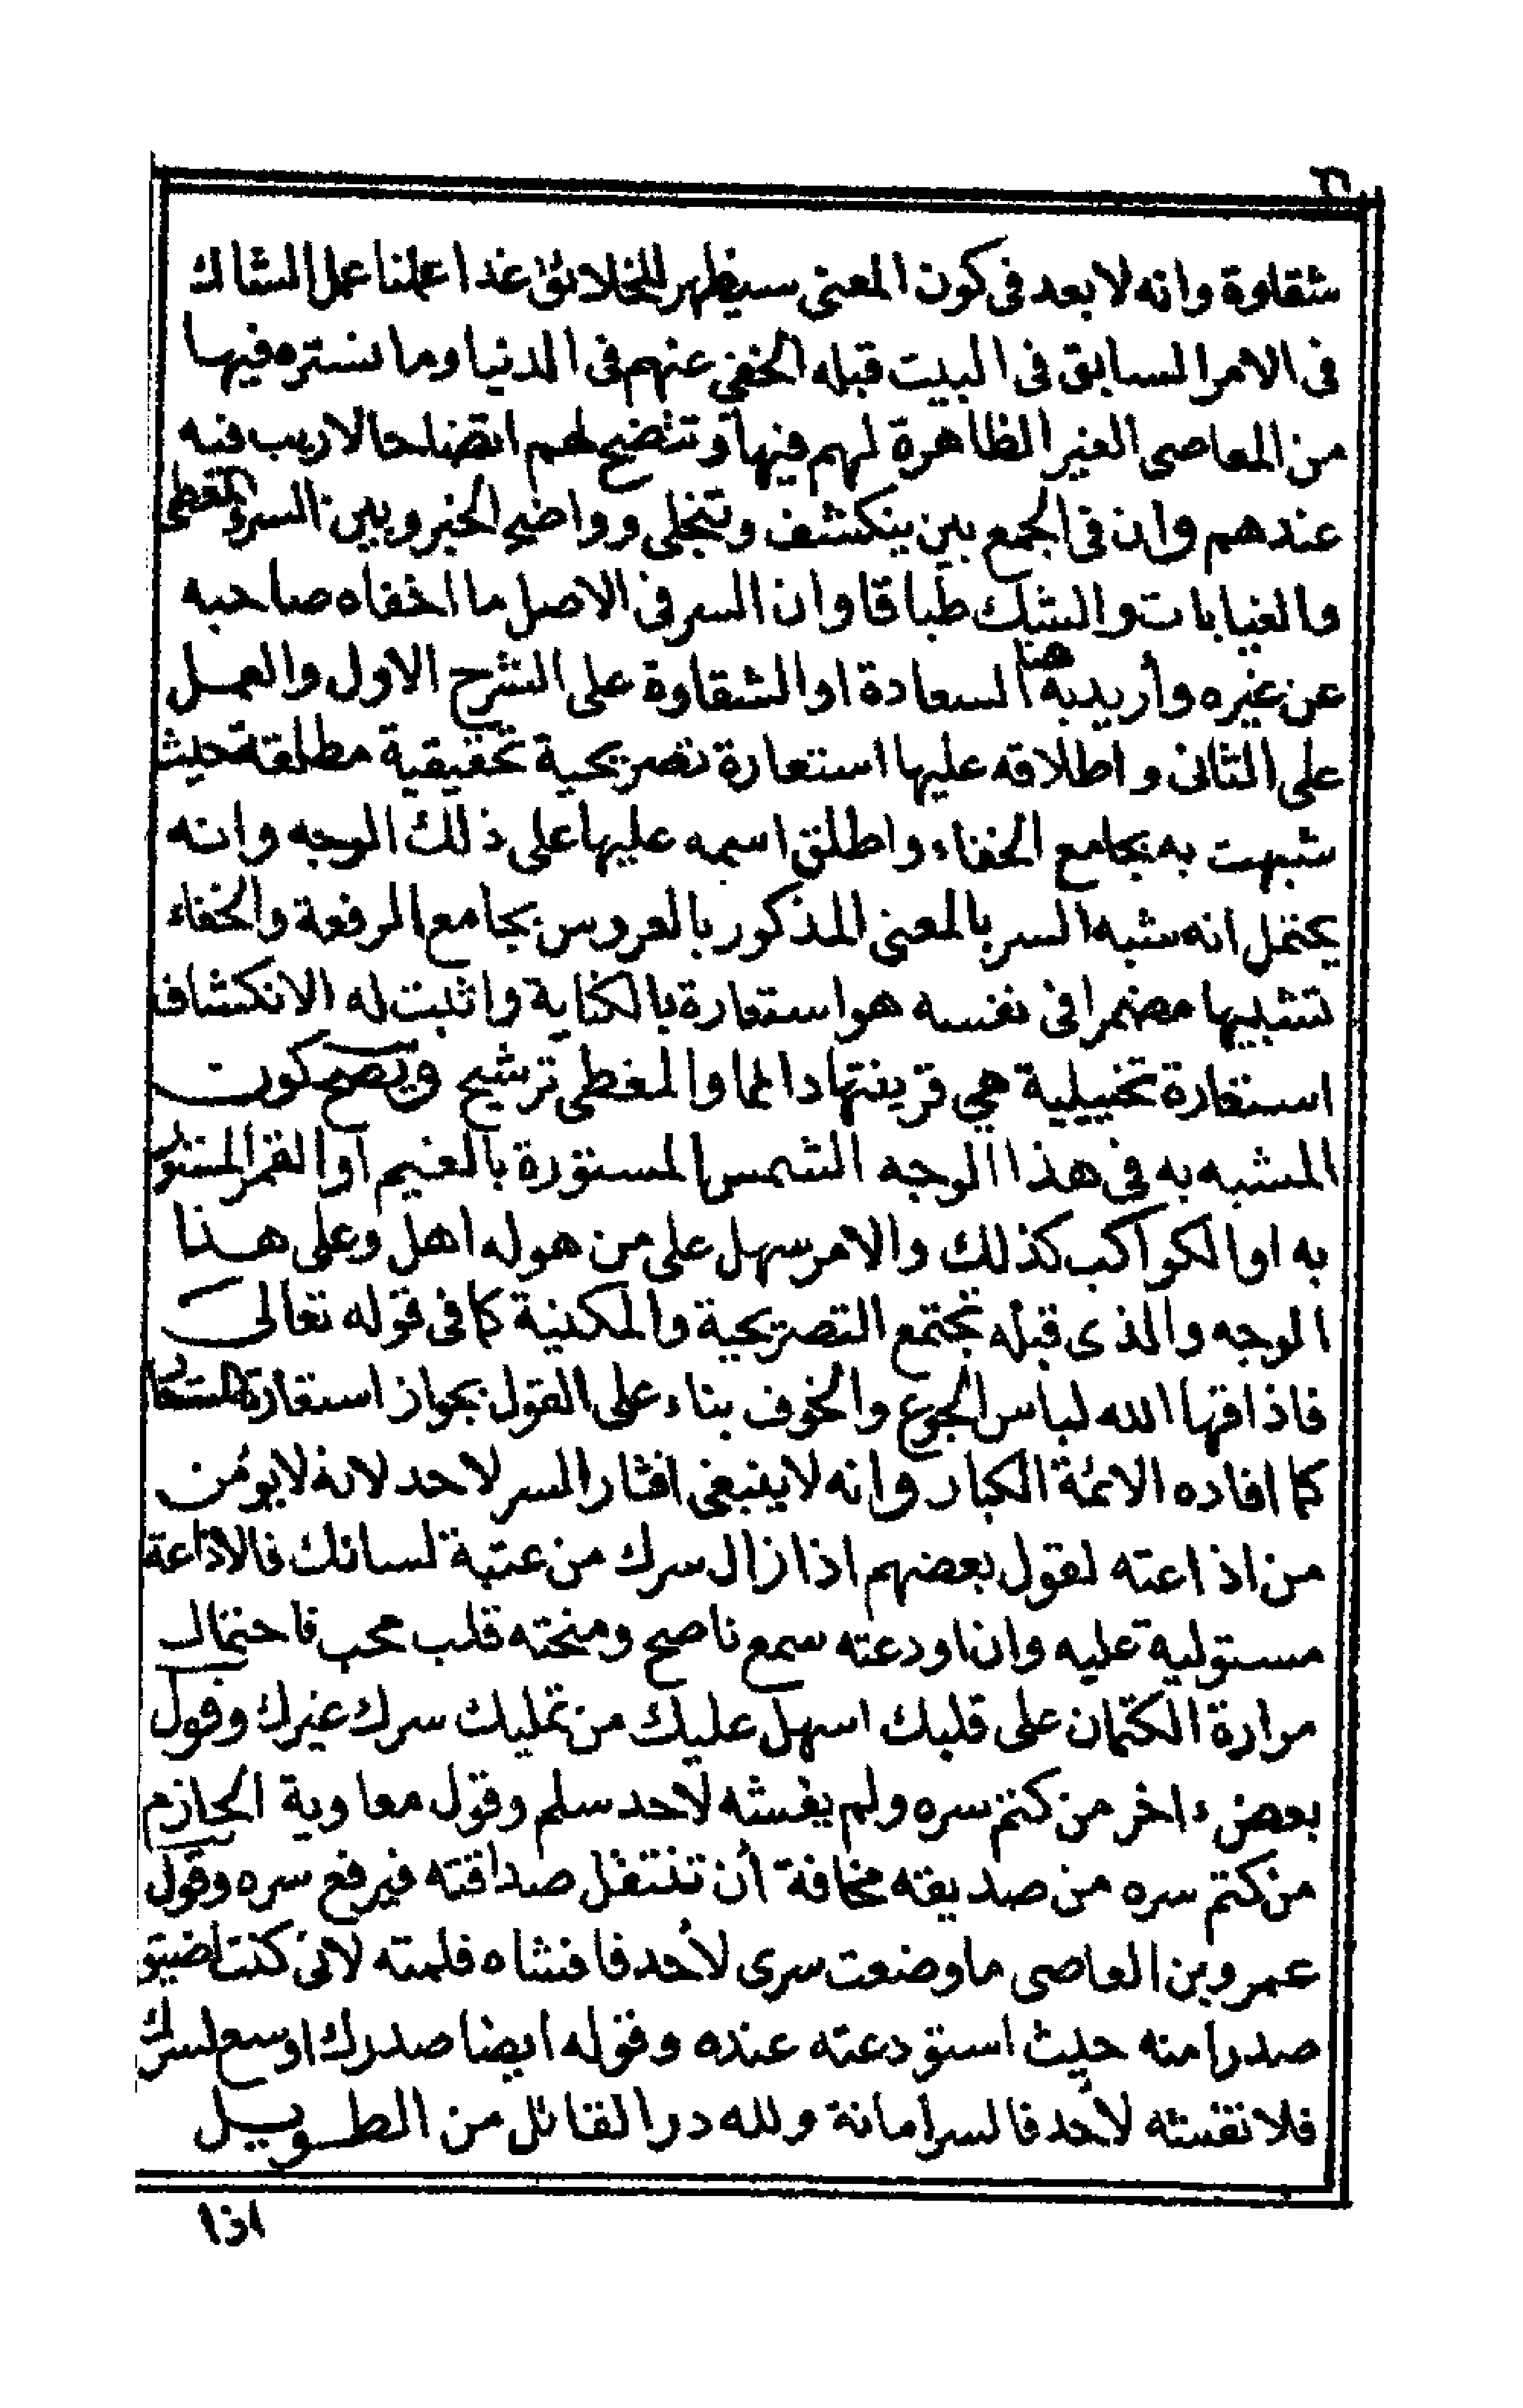 شقاوة وانه لا بعد فى كون المعنى سيظهر للخلائق غدا علمنا عمل الشاك
فى الامر السابق فى البيت قبله الخفى عنهم فى الدنيا وما نستره فيها
من المعاصى الغير الظاهرة لهم فيها وتتضح لهم اتضاحا لا ريب فيه
عندهم وان فى الجمع بين ينكشف وتنجلى وواضح الخبر وبين السر والمغطى
والغيابات والشك طباقا وان السر فى الاصل ما اخفاه صاحبه
عن غيره وأريد به هنا السعادة او الشقاوة على الشرح الاول والعمل
على الثانى واطلاقه عليها استعارة تصريحية تحقيقية مطلقة حيث
شبهت به بجامع الخفاء واطلق اسمه عليها على ذلك الوجه وانه
يحتمل انه شبه السر بالمعنى المذكور بالعروس بجامع الرفعة والخفاء
تشبيها مضمرا فى نفسه هو استعارة بالكناية واثبت له الانكشاف
استعارة تخييلية هي قرينتها دائما والمغطى ترشيح ويصح كون
المشبه به فى هذا الوجه الشمس المستورة بالغيم او القمر المستور
به او الكواكب كذلك والامر سهل على من هو له اهل وعلى هذا
الوجه والذى قبله تجتمع التصريحية والمكنية كما فى قوله تعالى
فاذاقها الله لباس الجوع والخوف بناء على القول بجواز استعارة المستعار
كما افاده الائمة الكبار وانه لا ينبغى افشار السر لاحد لانه لا يؤمن
من اذاعته لقول بعضهم اذا زال سرك من عتبة لسانك فالاذاعة
مستولية عليه وان اودعته سمع ناصح ومنحته قلب محب فاحتمال
مرارة الكتمان على قلبك اسهل عليك من تمليك سرك غيرك وقول
بعض ءاخر من كتم سره ولم يفشه لاحد سلم وقول معاوية الحازم
من كتم سره من صديقه مخافة أن تنتقل صداقته فيرفع سره وقول
عمرو بن العاصى ما وضعت سرى لأحد فافشاه فلمته لانى كنت اضيق
صدرا منه حيث استودعته عنده وقوله ايضا صدرك اوسع لسرك
فلا تفشه لأحد فالسر امانة ولله در القائل من الطويل
اذا